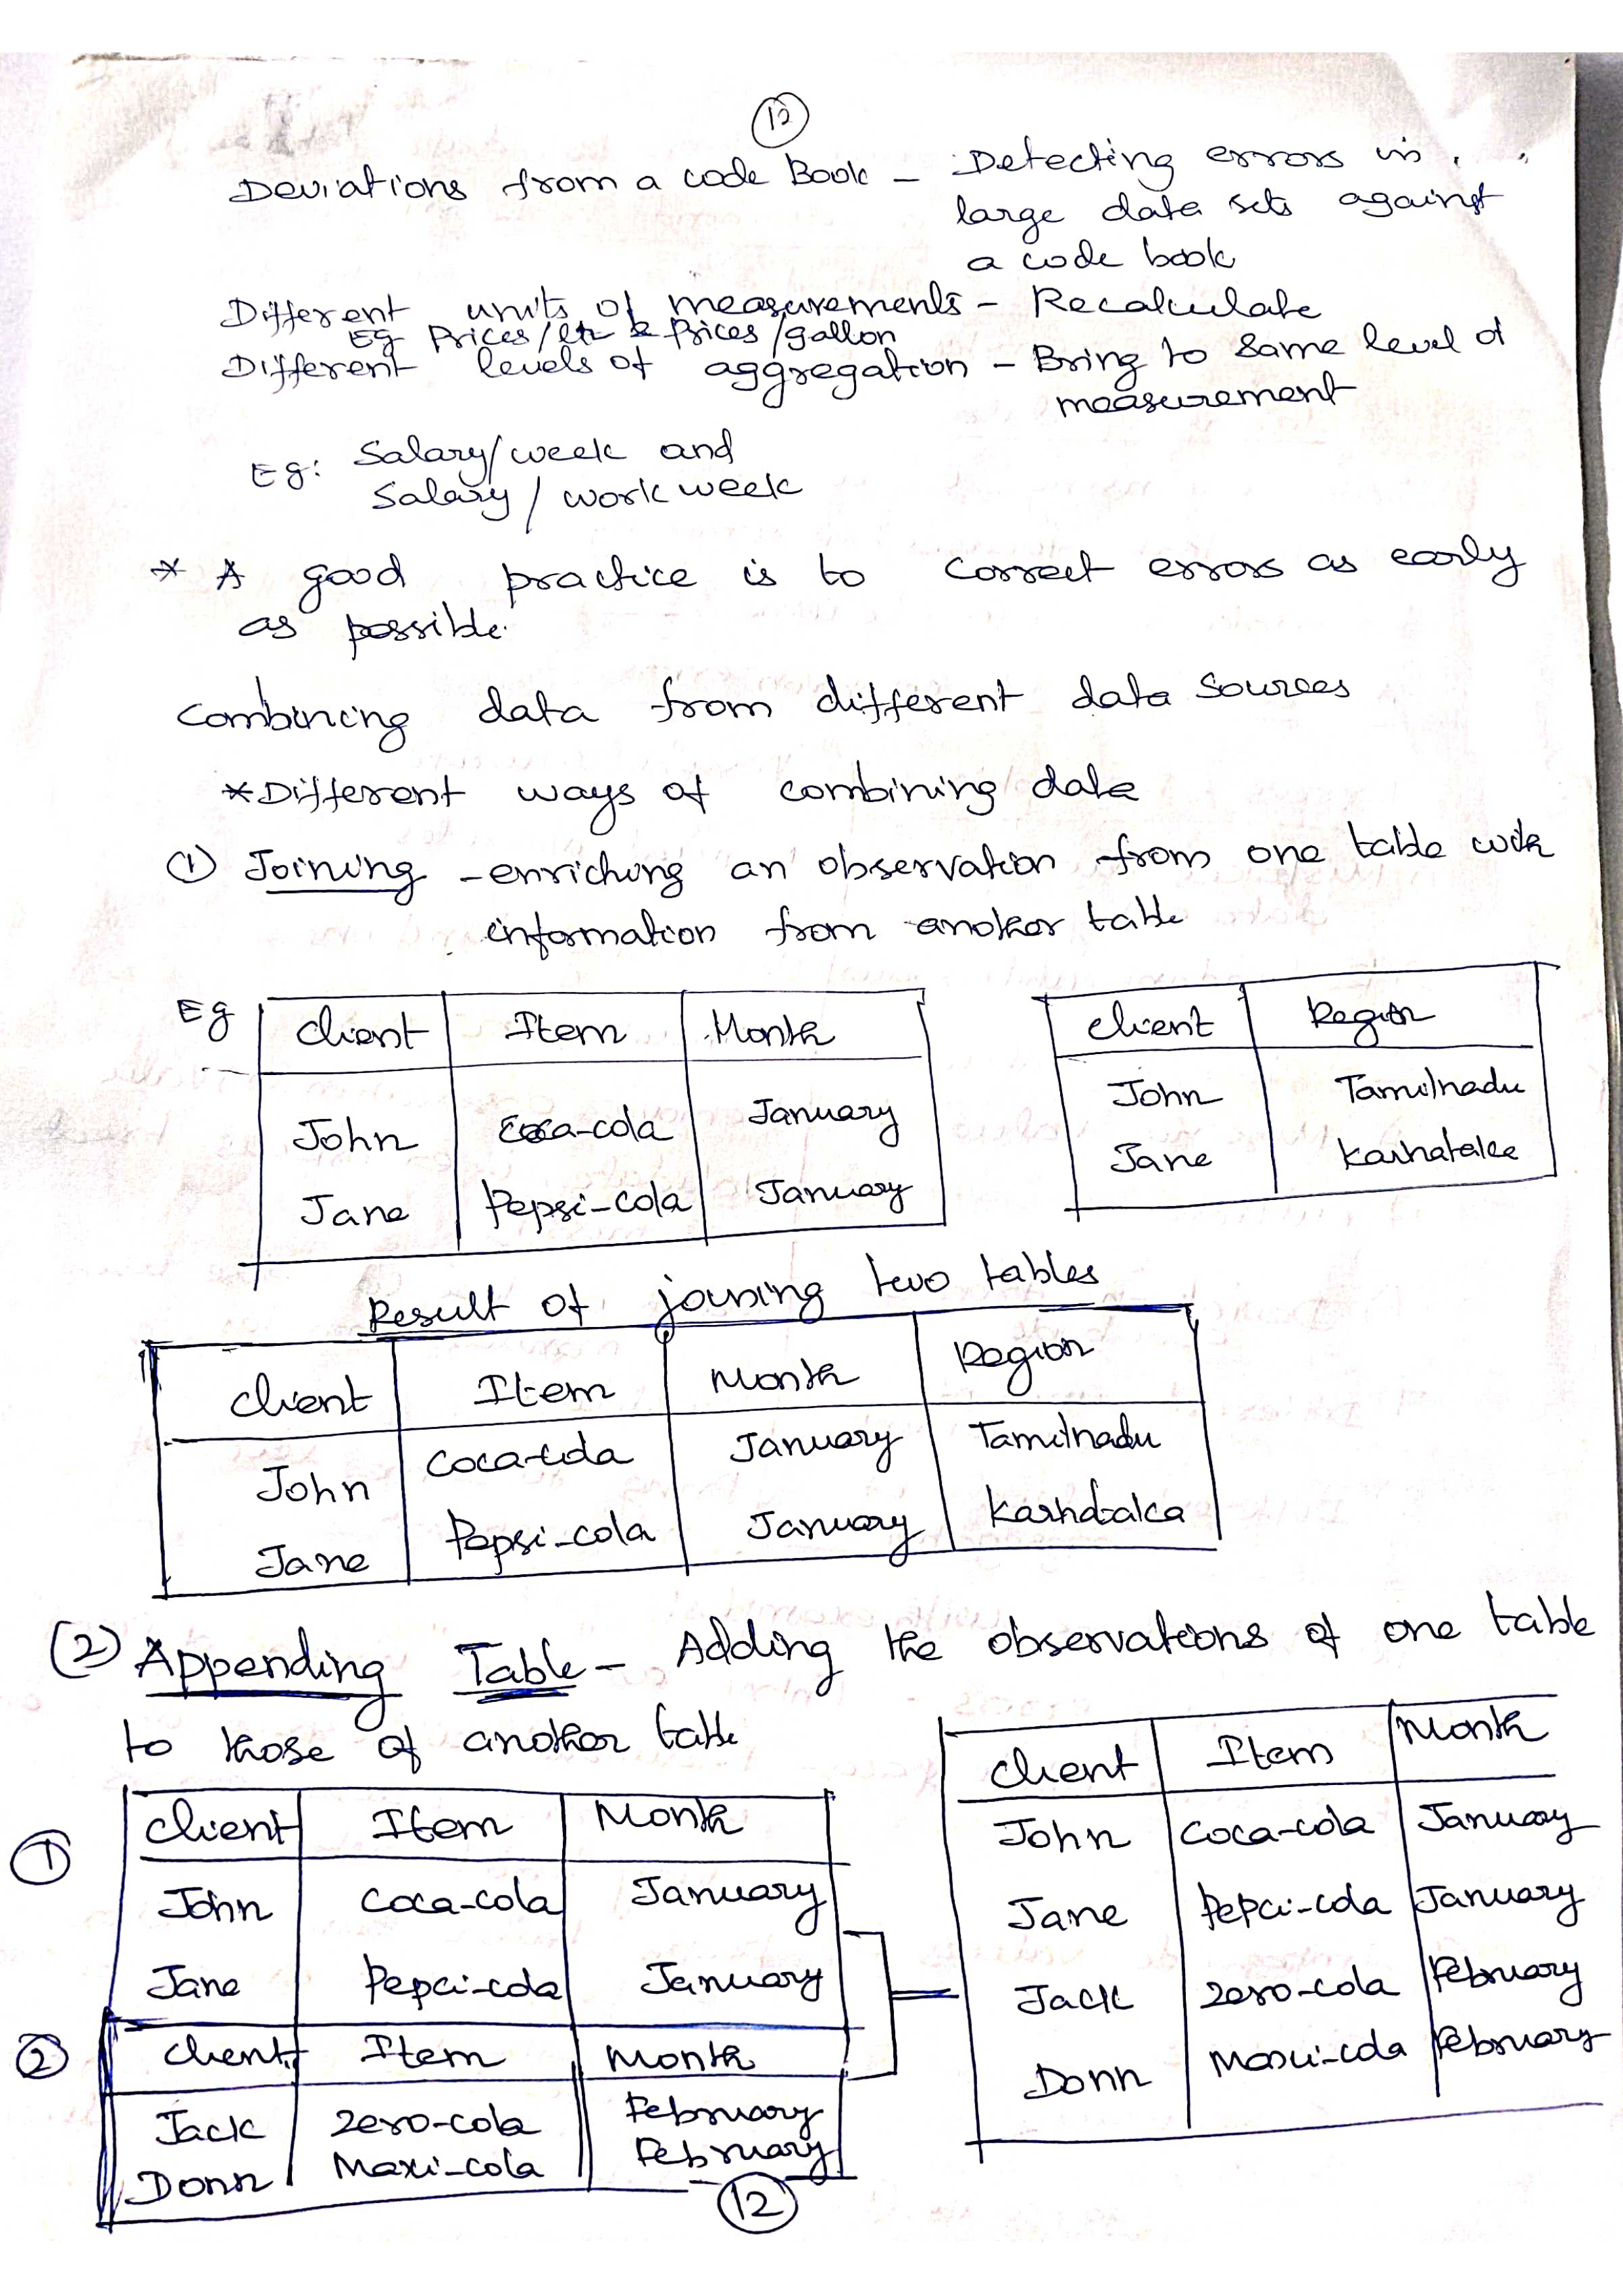 12
Deviations from a code Book - Detecting errors in
large data sets against
a code book
Different units of measurements - Recalculate
Eg Prices/ltr & Prices/gallon
Different levels of aggregation - Bring to same level of
measurement
Eg: Salary/week and
Salary/work week
* A good practice is to correct errors as early
as possible.
Combining data from different data sources
*Different ways of combining data
① Joining - enriching an observation from one table with
information from another table
Eg
Client Item Month
John Coca-cola January
Jane Pepsi-cola January
Client Region
John Tamilnadu
Jane Karnataka
Result of joining two tables
Client Item Month Region
John Coca-cola January Tamilnadu
Jane Pepsi-cola January Karnataka
(2) Appending Table - Adding the observations of one table
to those of another table
①
Client Item Month
John Coca-cola January
Jane Pepci-cola January
②
Client Item Month
Jack Zero-cola February
Donn Maxi-cola February
Client Item Month
John Coca-cola January
Jane Pepci-cola January
Jack Zero-cola February
Donn Maxi-cola February
12